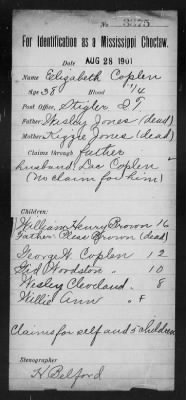 No. 3375
For Identification as a Mississippi Choctaw.
Date AUG 28 1901
Name Elizabeth Coplen
Age 38 Blood 1/4
Post Office, Stigler I T
Father, Wesley Jones (dead)
Mother, Kizzie Jones (dead)
Claims through father
husband, Coplen
(no claim for him)
Children:
William Henry Brown 16
Father Brown (dead)
George W Coplen 12
Woodston " 10
Wesley Cleveland " 8
Willie Ann "
Claims for self and 5 children
Stenographer
H Belford